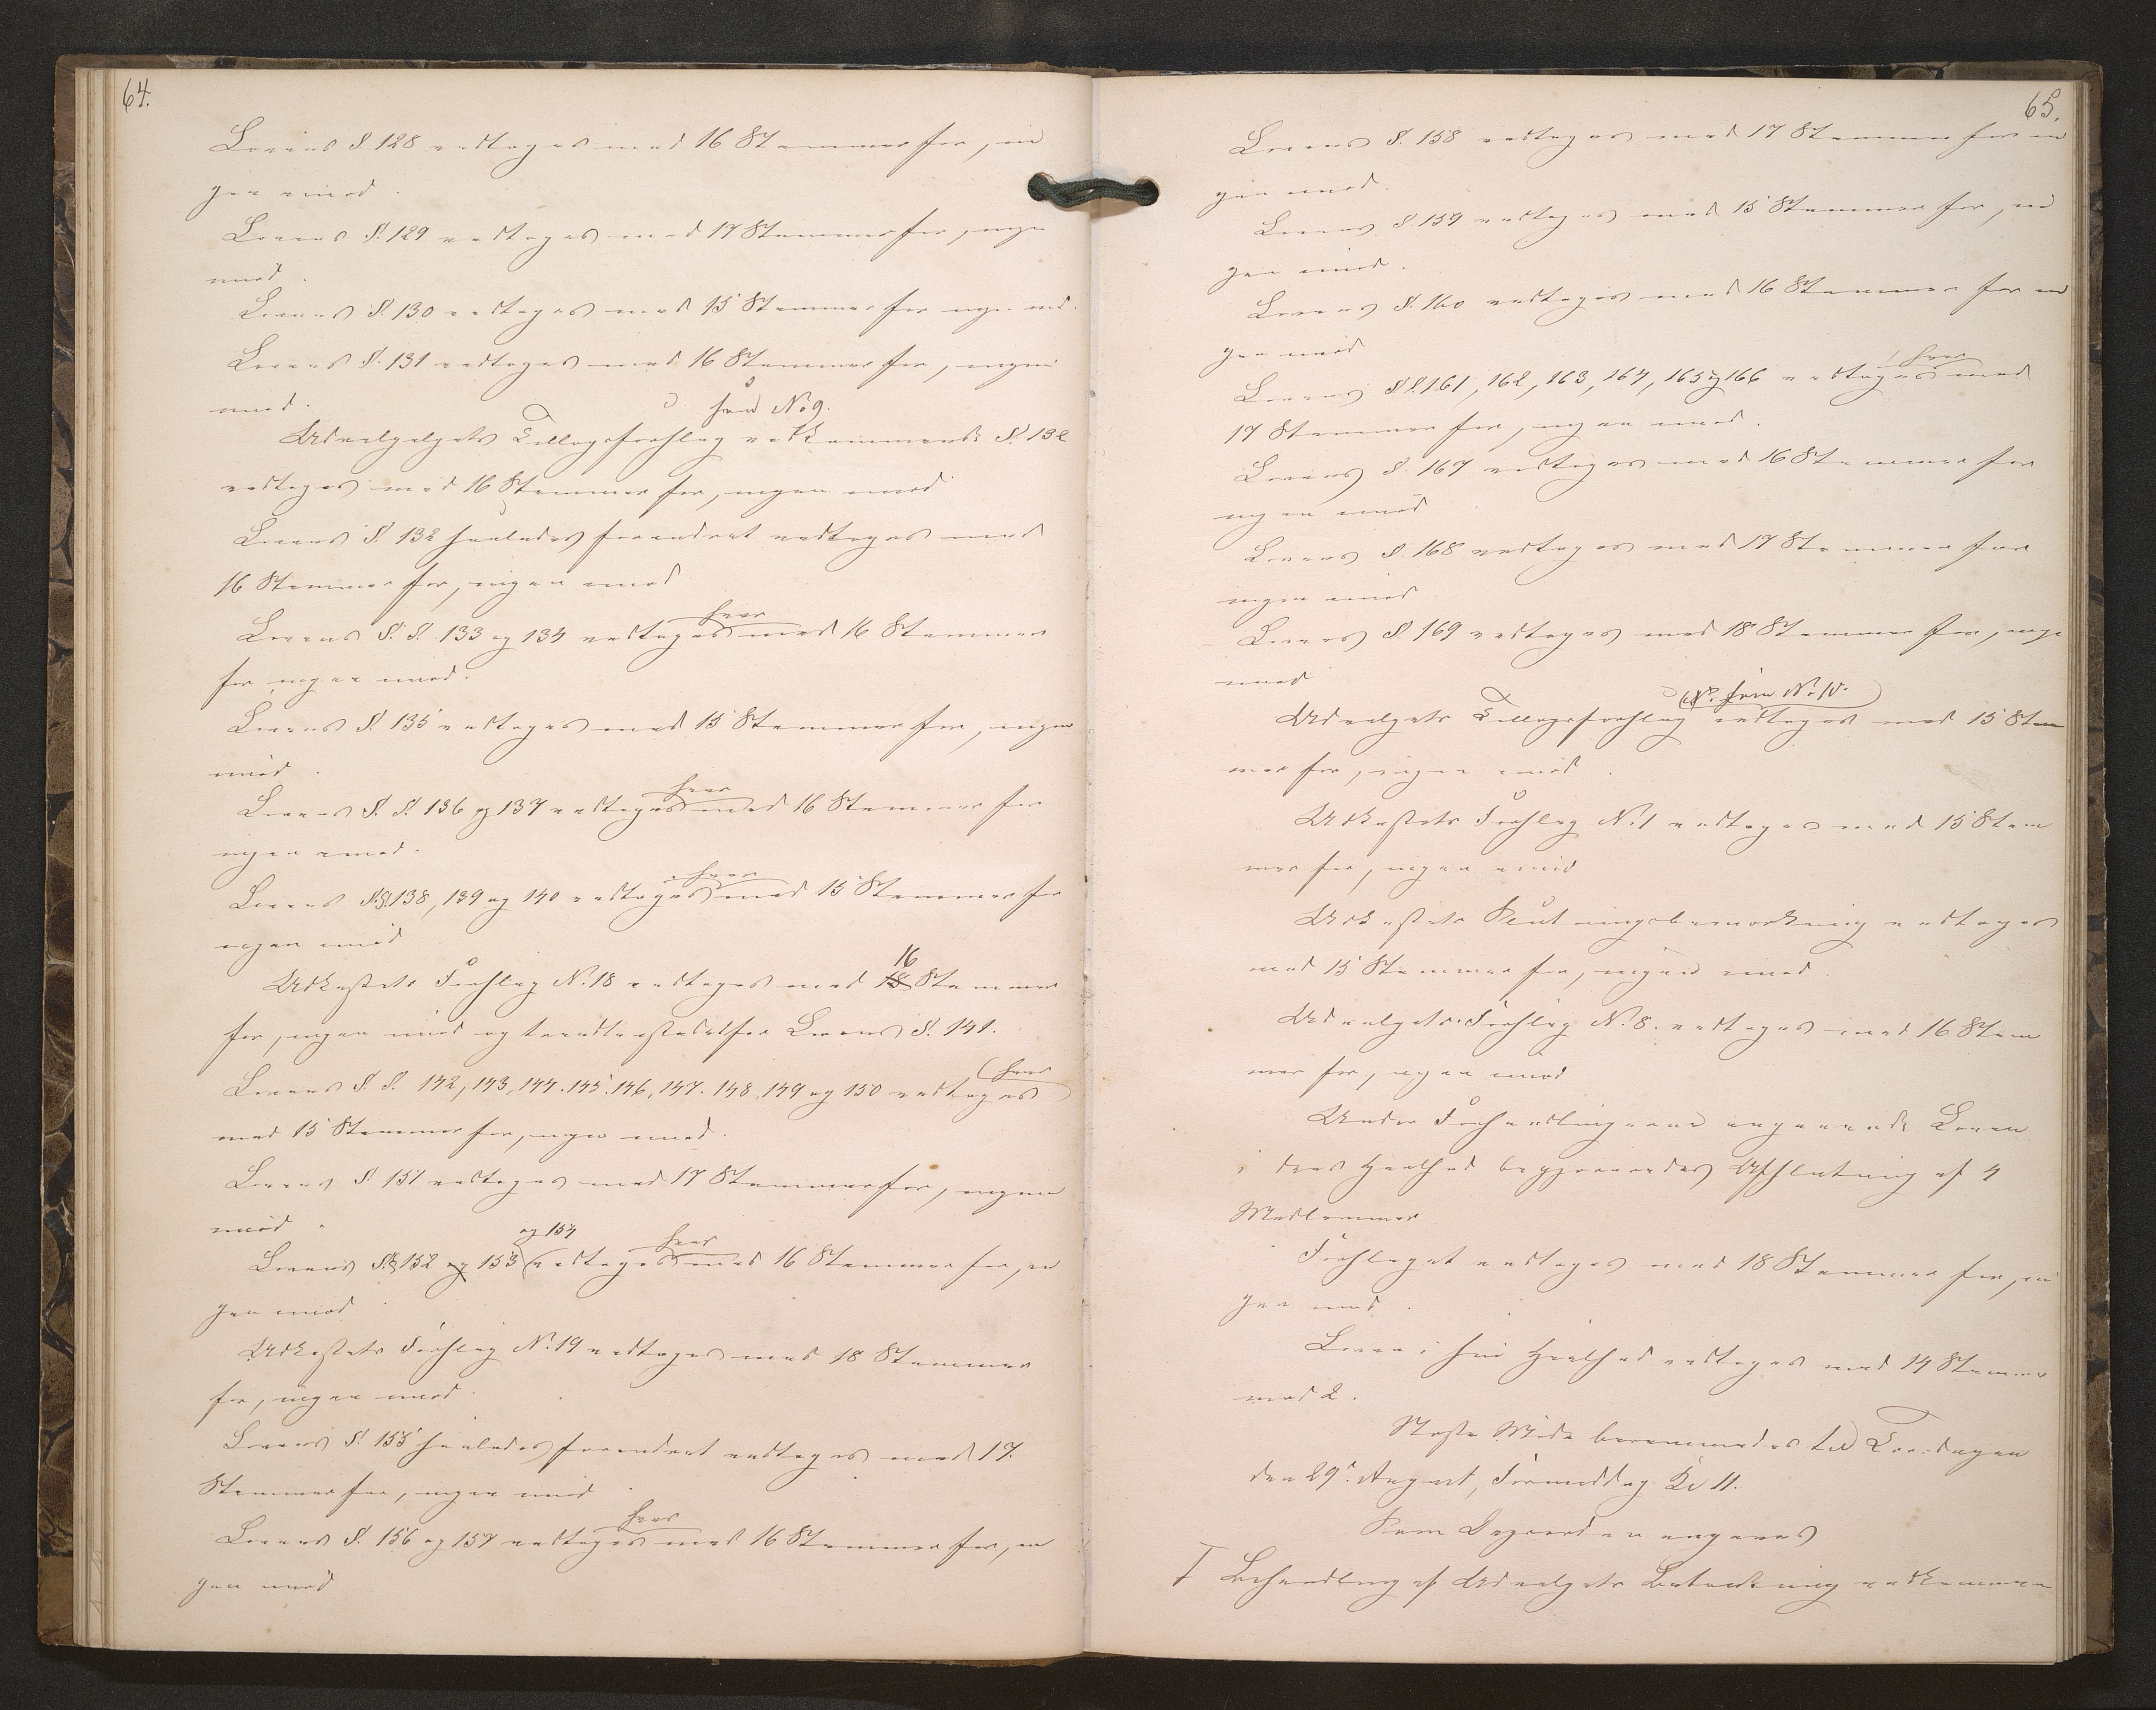 64.
Lovens §. 128 vedtoges med 16 Stemmer for, in
gen imod.
Lovens §. 129 vedtoges med 17 Stemmer for, ingen
imod.
Lovens §. 130 vedtoges med 15 Stemmer for ingen imod.
Lovens §. 131 vedtoges med 16 Stemmer for, ingen
imod.
No 9.
Udvalgets Tillægsforslag vedkommende §. 132
vedtoges med 16 Stemmer for, ingen imod
Lovens §. 132 saaledes forandret vedtoges med
16 Stemmer for, ingen imod
hver
Lovens §. §. 133 og 134 vedtoges med 16 Stemmer
for ingen imod.
Lovens §. 135 vedtoges med 15 Stemmer for, ingen
imod.
hver
Lovens §. §. 136 og 137 vedtoges med 16 Stemmer for
ingen imod.
hver
Lovens §.§. 138, 139 og 140 vedtoges med 15 Stemmer for
ingen imod
16
Udkastets Forslag No. 18 vedtoges med 18 Stemmer
for, ingen imod og traadte istedetfor Lovens §. 141.
hver
Lovens §. §. 142, 143, 144. 145. 146, 147. 148. 149 og 150 vedtoges
med 15 Stemmer for, ingen imod.
Lovens § 151 vedtoges med 17 Stemmer for, ingen
imod.
og 154
hver
Lovens §.§ 152 og 153 vedtoges med 16 Stemmer for, in
gen imod
Udkastets Forslag No. 19 vedtoges med 18 Stemmer
for, ingen imod.
Lovens §. 155 saaledes forandret vedtoges med 17.
Stemmer for, ingen imod.
hver
Lovens §. 156 og 157 vedtoges med 16 Stemmer for, in
gen imod
65.
Lovens §. 158 vedtoges med 17 Stemmer for in
gen imod.
Lovens §. 159 vedtoges med 15 Stemmer for, in
gen imod.
Lovens §. 160 vedtoges med 16 Stemmer for in
gen imod
hver
Lovens §§. 161, 162, 163, 164, 165 og 166 vedtoges med
17 Stemmer for, ingen imod.
Lovens §. 167 vedtoges med 16 Stemmer for
ingen imod
Lovens §. 168 vedtoges med 17 Stemmer for
ingen imod
Lovens §. 169 vedtoges med 18 Stemmer for, ingen
imod
No. 10.
Udvalgets Tillægsforslag vedtoges med 15 Stem
mer for, ingen imod.
Udkastets Forslag No. 1 vedtoges med 15 Stem
mer for, ingen imod
Udkastets Slutningsbemærkning vedtoges
med 15 Stemmer for, ingen imod.
Udvalgets Forslag No. 8. vedtoges med 16 Stem
mer for, ingen imod
Under Forhandlingerne angaaende Loven
i dens Heelhed begjæredes Afslutning af 4
Medlemmer
Forslaget vedtoges med 18 Stemmer for, in
gen imod.
Loven i sin Heelhed vedtoges med 14 Stemmer
mod 2.
Næste Møde berammedes til Torsdagen
den 29de August, Formiddag Kl 11.
Som Dagsorden angaves
I Behandling af Udvalgets Betænkning vedkommen